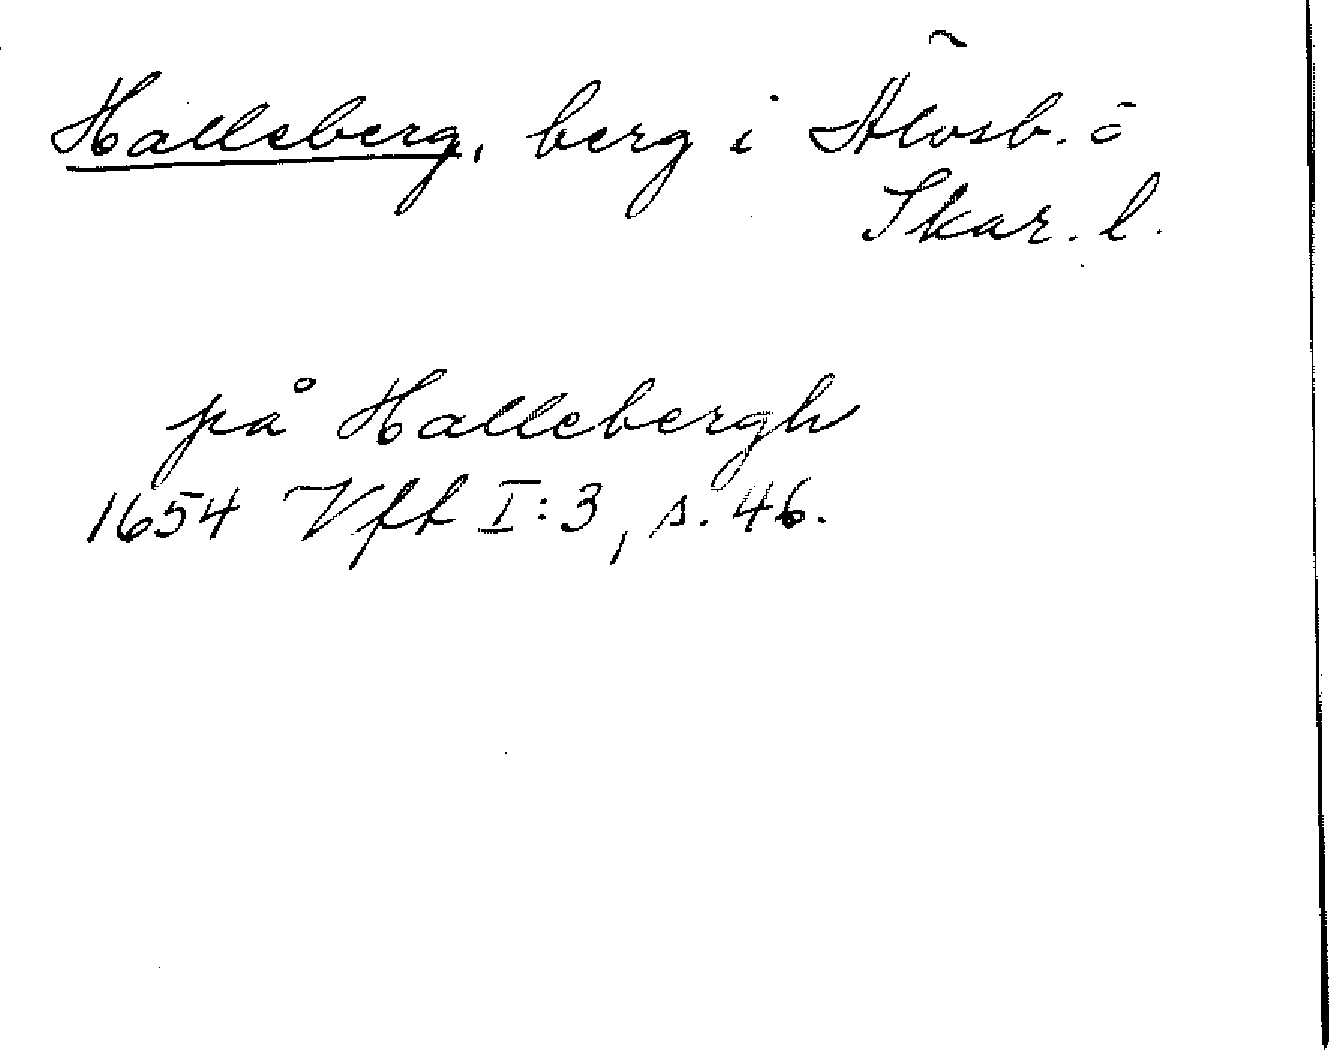 Halleberg, berg i Älvsb. o
Skar. l.
på Hallebergh
1654 Vft I:3, s. 46.